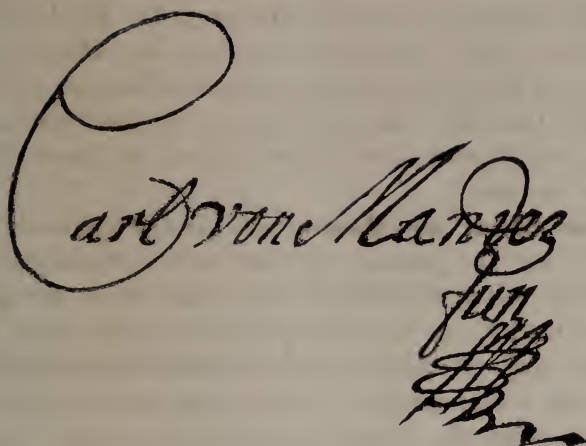 Carl von Mander
jun